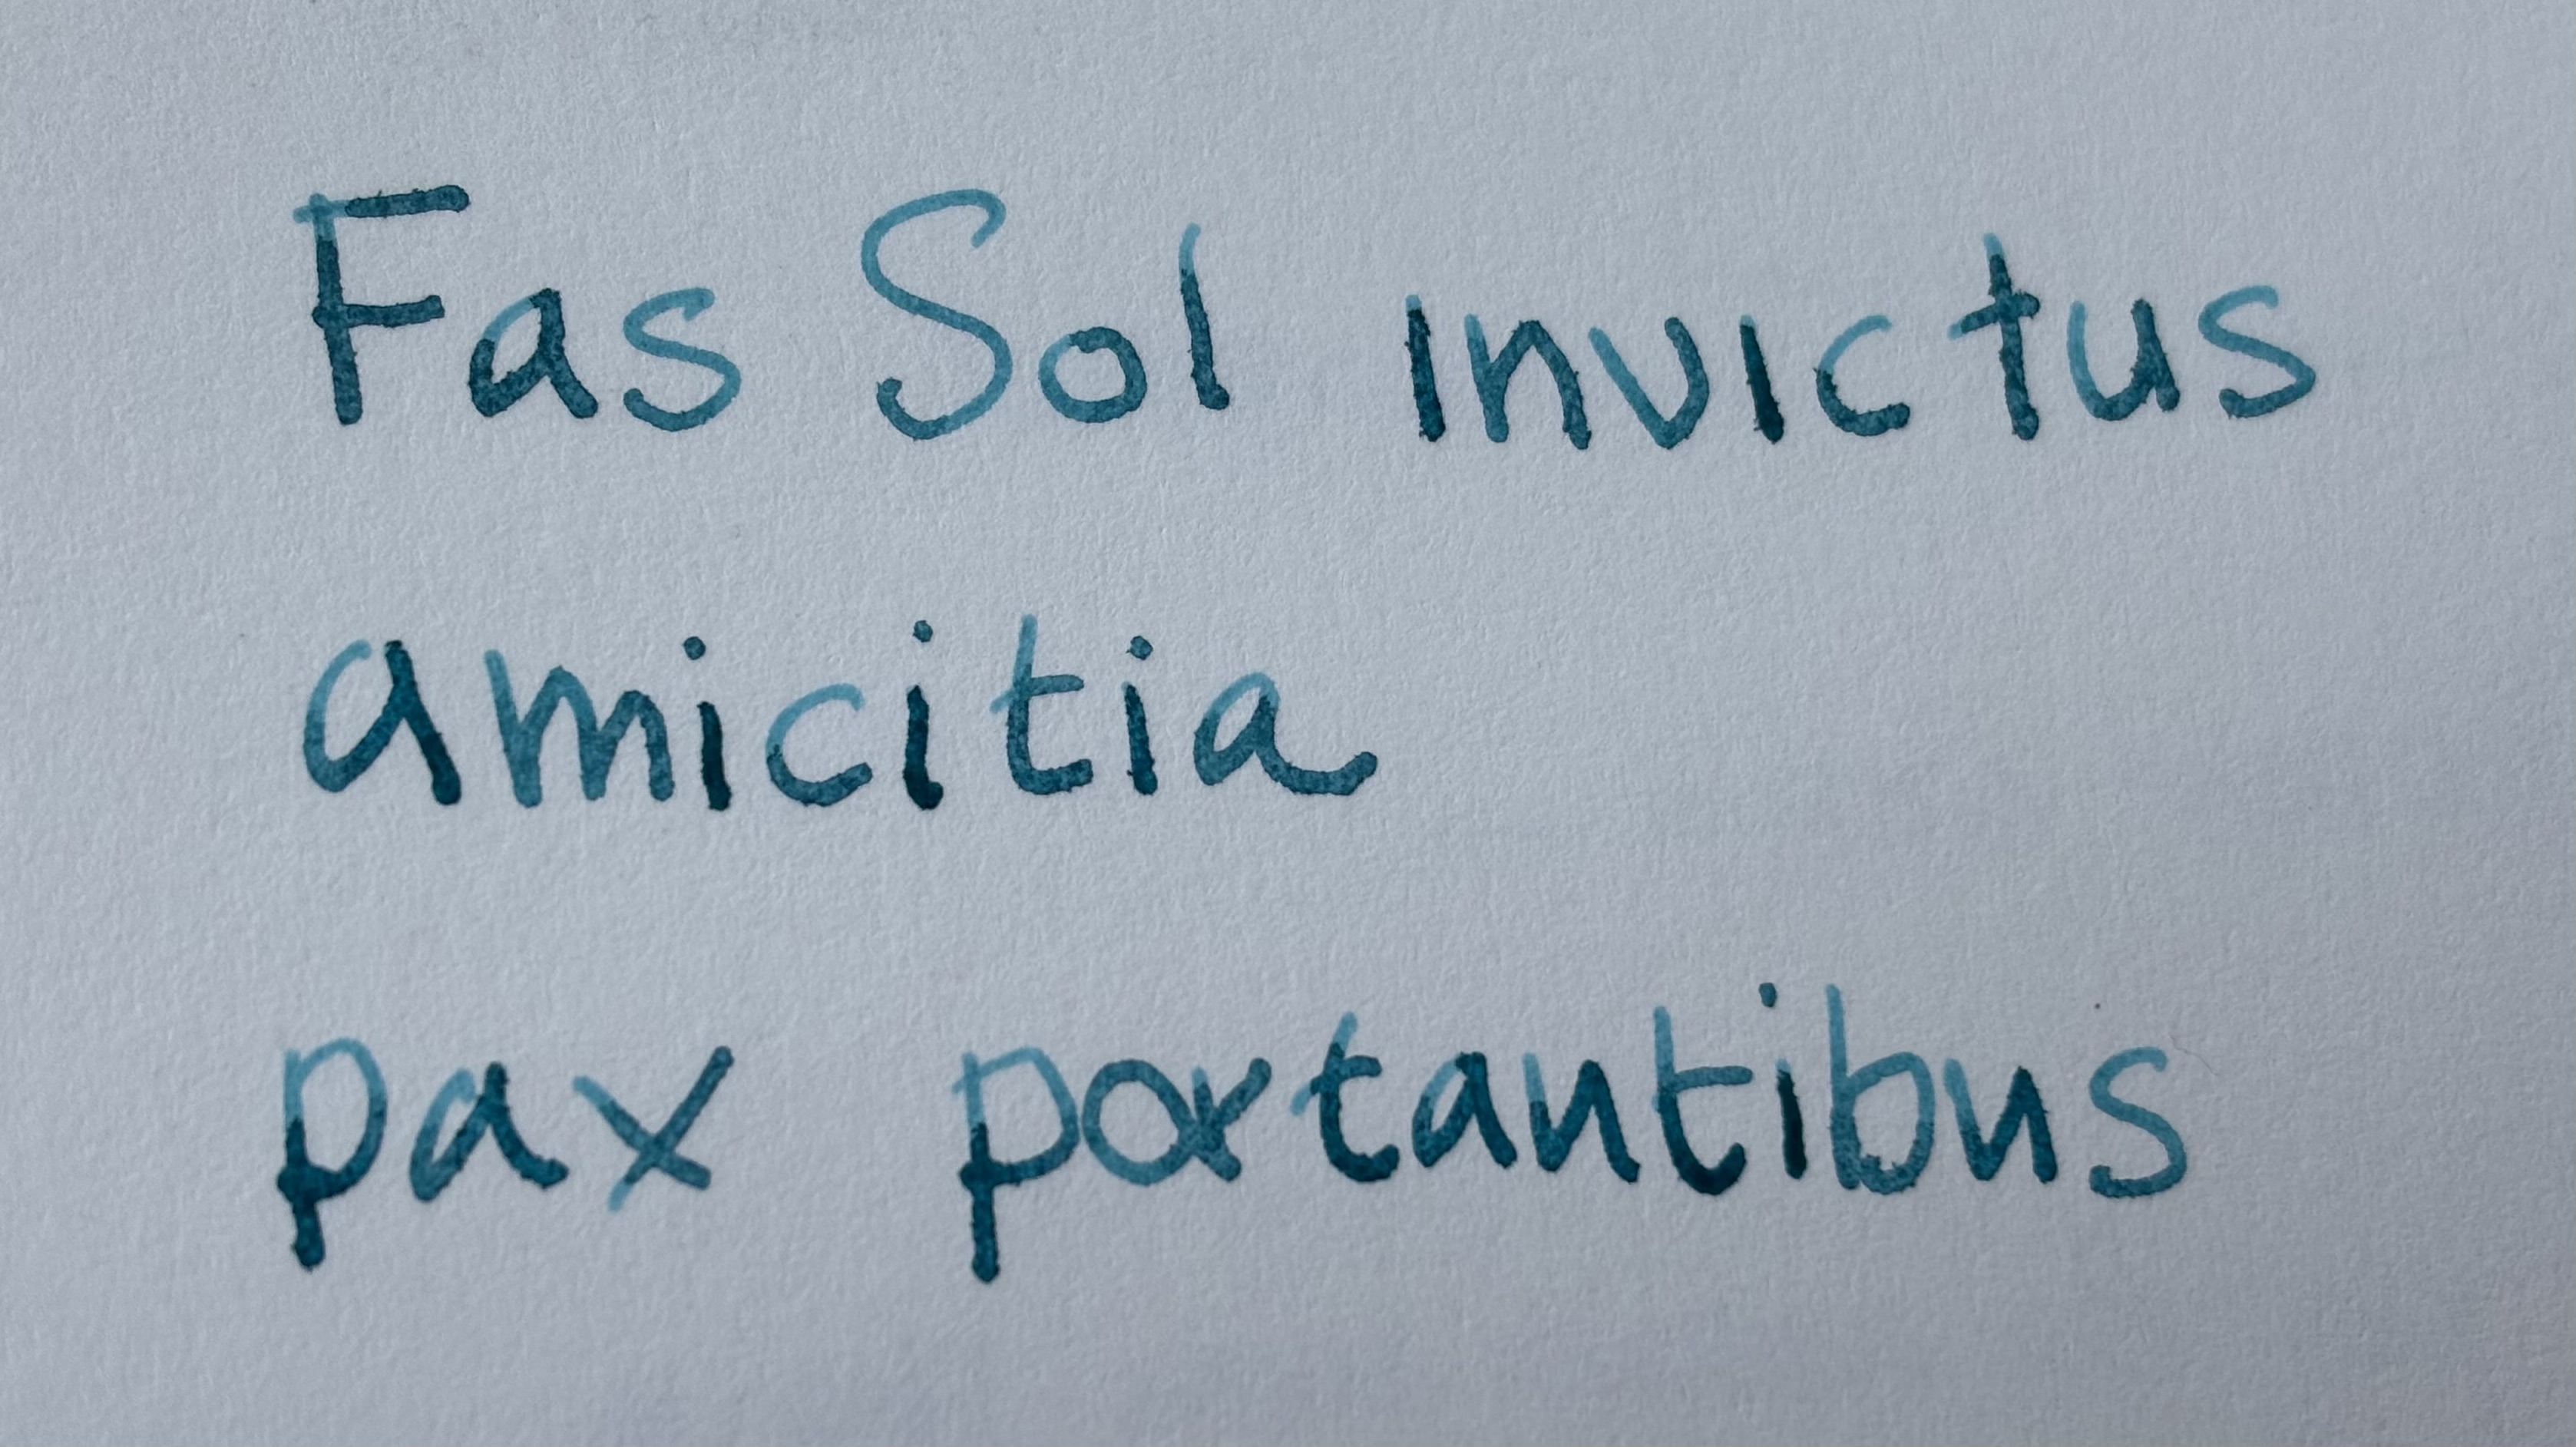 Fas Sol invictus
amicitia
pax portantibus